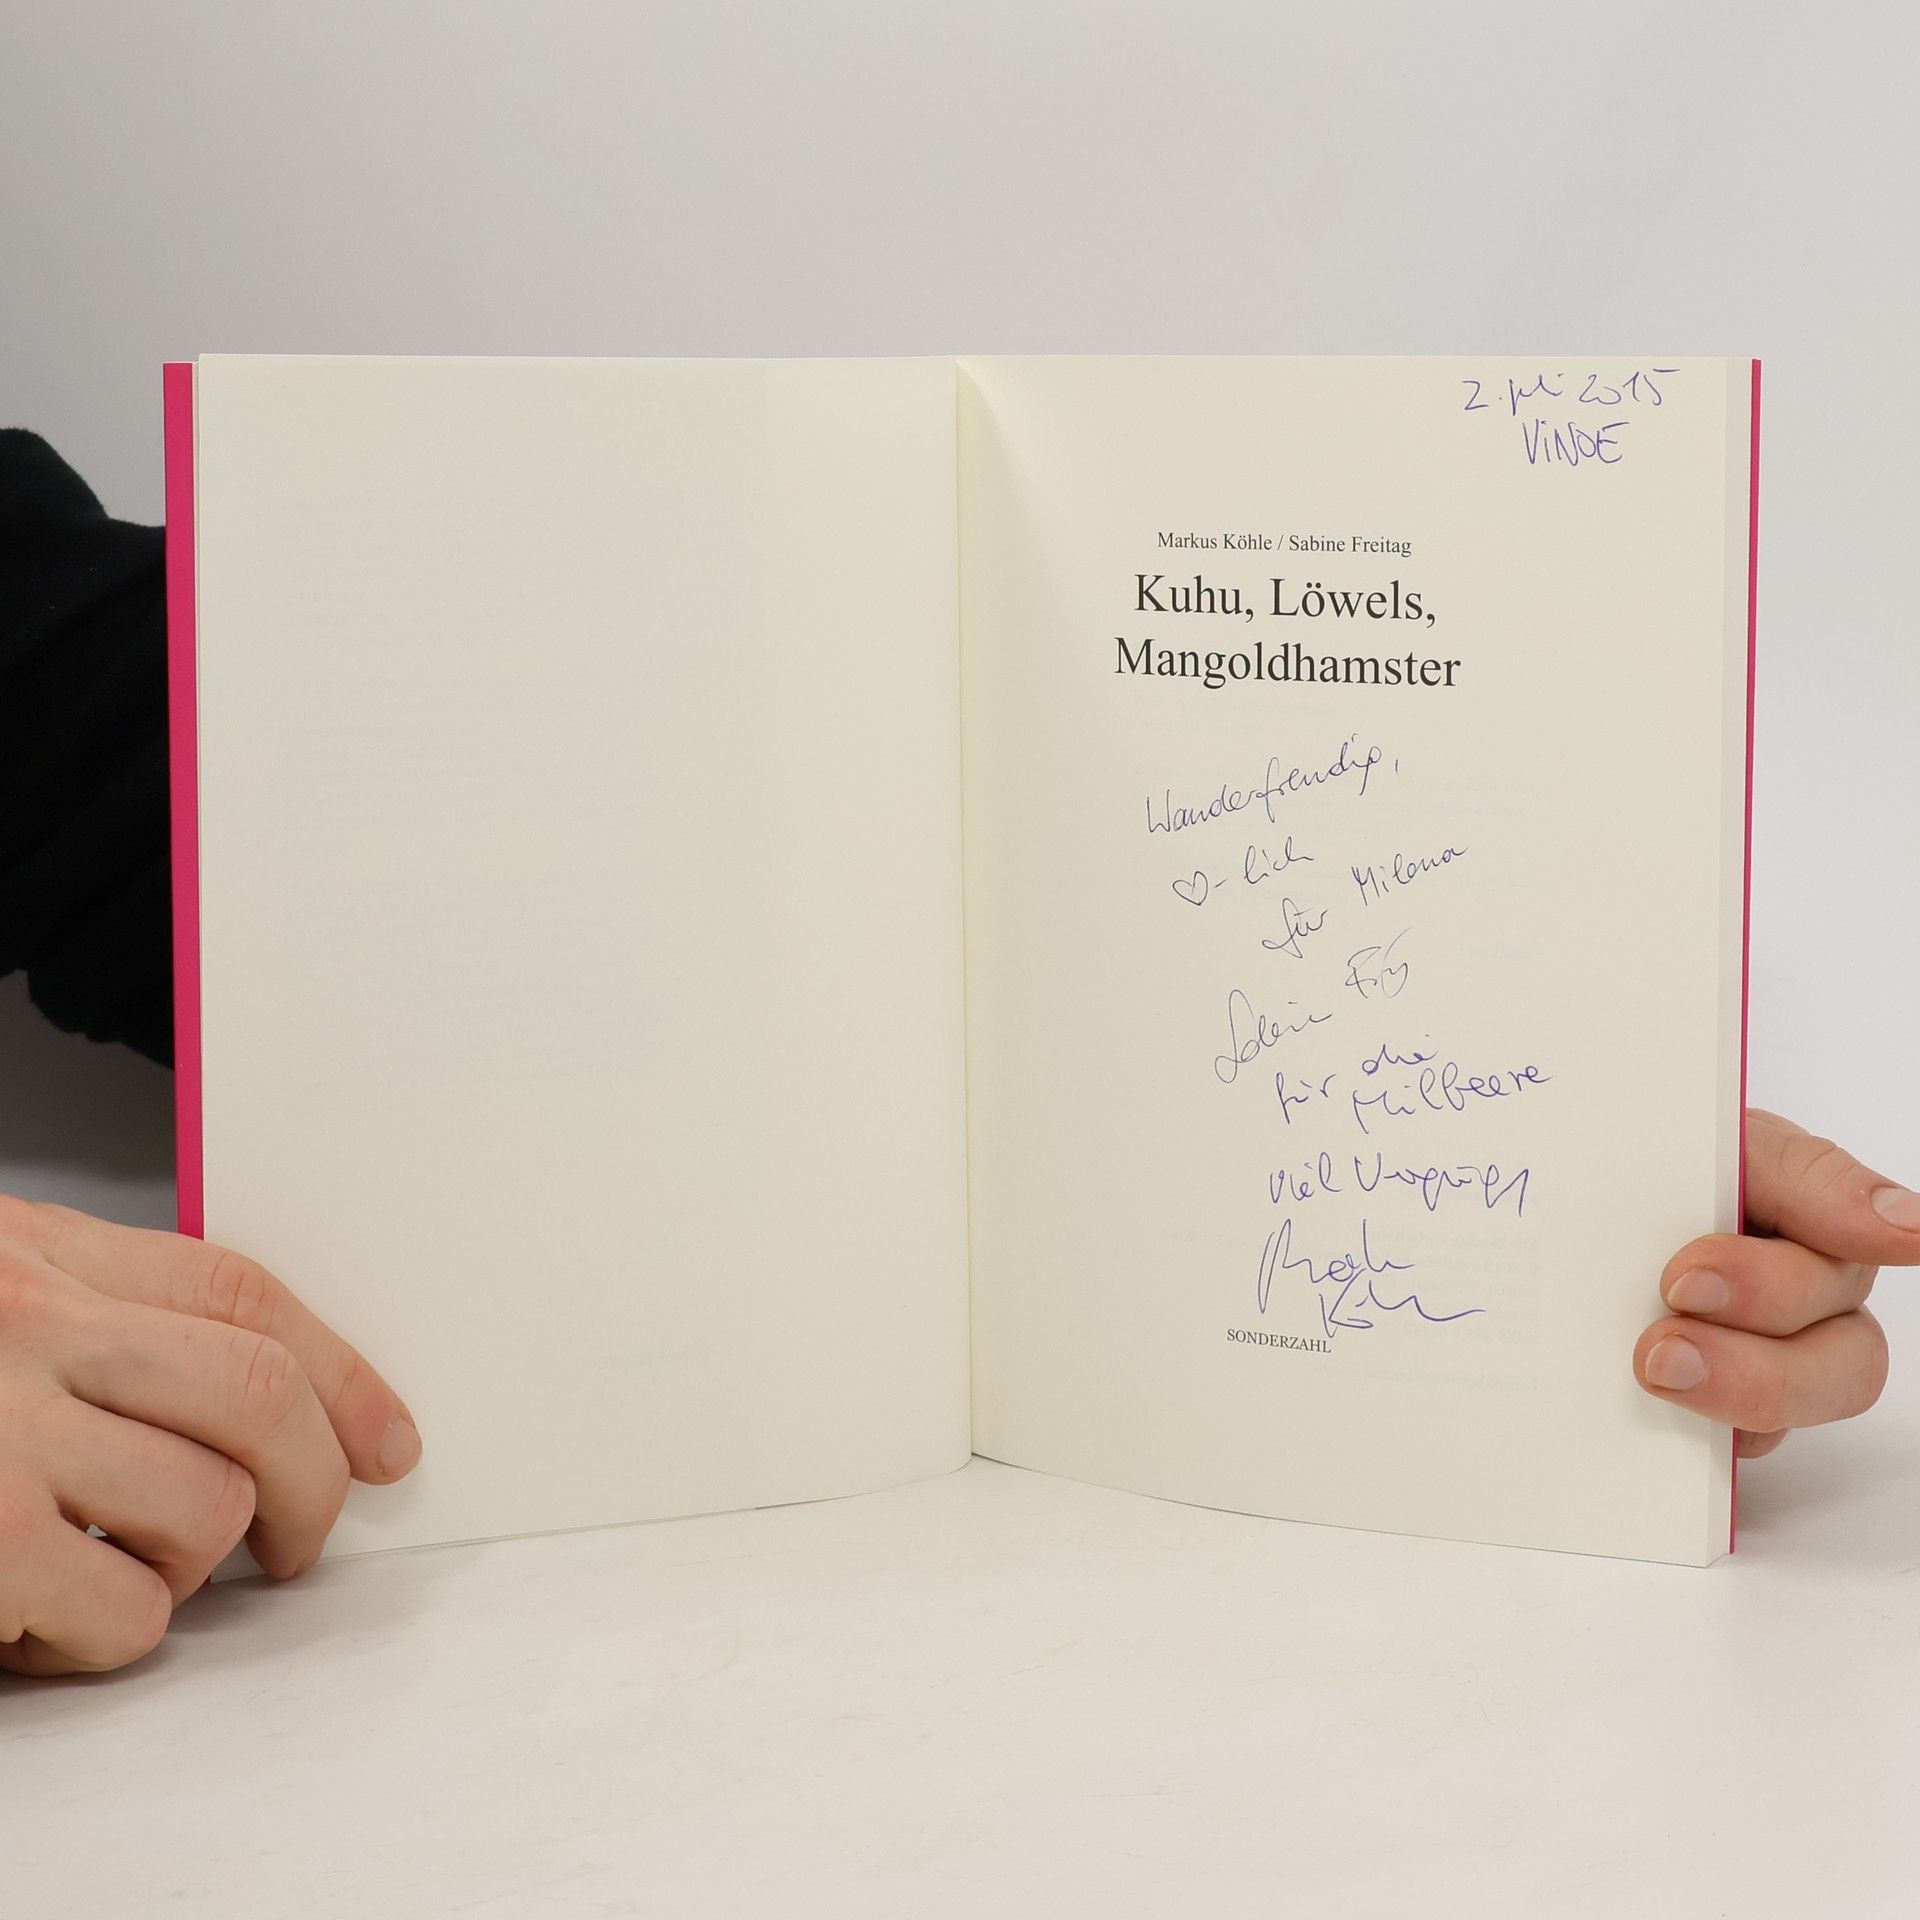 2. Juli 2015
ViNOE
Markus Köhle / Sabine Freitag
Kuhu, Löwels,
Mangoldhamster
Wanderfreudig,
♡-lich
für Milena
Sabine
für die
Milbeere
viel Vergnügen
Markus
Köhle
SONDERZAHL